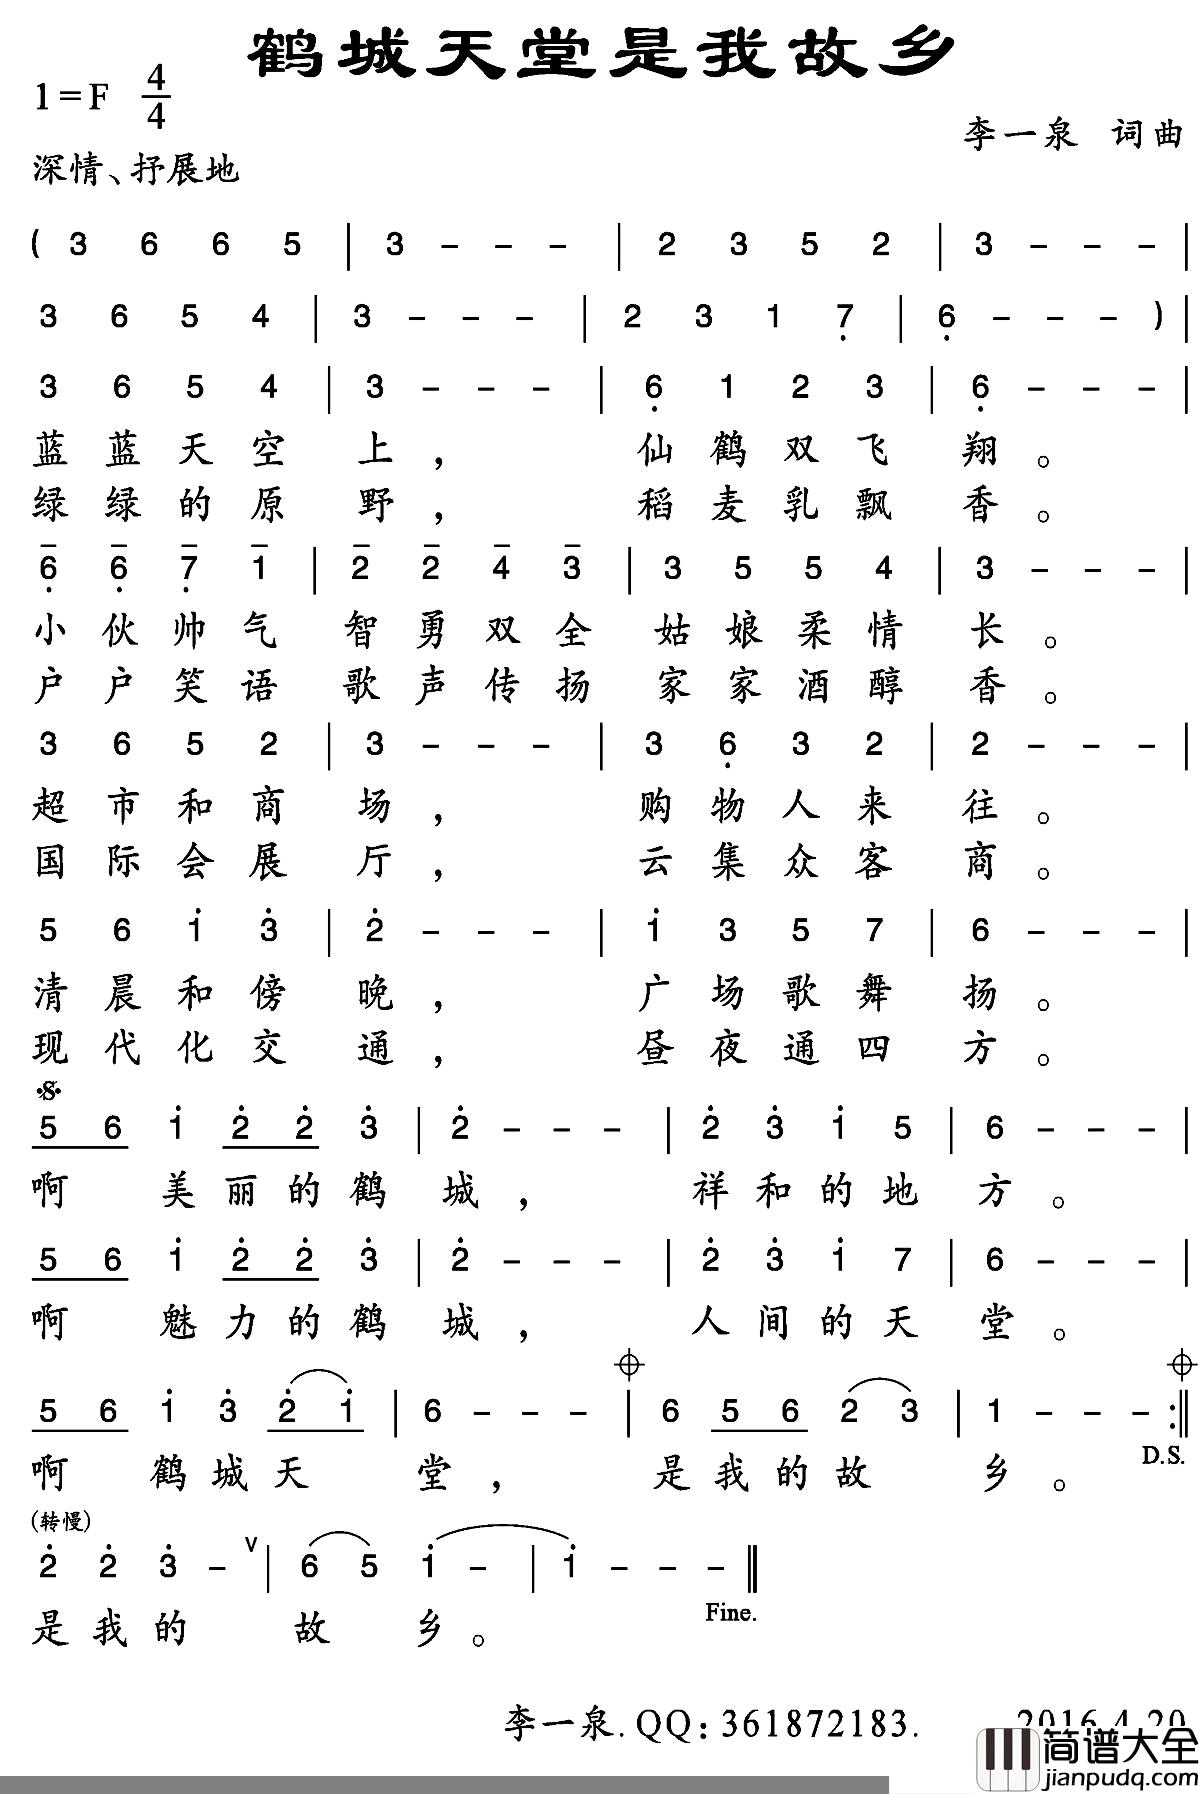 鹤城天堂是我故乡
1=F 4/4
李一泉 词曲
深情、抒展地
( 3 6 6 5 | 3 - - - | 2 3 5 2 | 3 - - - |
3 6 5 4 | 3 - - - | 2 3 1 7̣ | 6̣ - - - ) |
3 6 5 4 | 3 - - - | 6̣ 1 2 3 | 6̣ - - - |
蓝蓝天空上， 仙鹤双飞翔。
绿绿的原野， 稻麦乳飘香。
6̣̄ 6̣̄ 7̣̄ 1̄ | 2̄ 2̄ 4̄ 3̄ | 3 5 5 4 | 3 - - - |
小伙帅气 智勇双全 姑娘柔情长。
户户笑语 歌声传扬 家家酒醇香。
3 6 5 2 | 3 - - - | 3 6̣ 3 2 | 2 - - - |
超市和商场， 购物人来往。
国际会展厅， 云集众客商。
5 6 1̇ 3̇ | 2̇ - - - | 1̇ 3 5 7 | 6 - - - |
清晨和傍晚， 广场歌舞扬。
现代化交通， 昼夜通四方。
𝄋
5 6 1̇ 2̇ 2̇ 3̇ | 2̇ - - - | 2̇ 3̇ 1̇ 5 | 6 - - - |
啊 美丽的鹤城， 祥和的地方。
5 6 1̇ 2̇ 2̇ 3̇ | 2̇ - - - | 2̇ 3̇ 1̇ 7 | 6 - - - |
啊 魅力的鹤城， 人间的天堂。
𝄌 𝄌
5 6 1̇ 3̇ 2̇ 1̇ | 6 - - - | 6 5 6 2 3 | 1 - - - :‖
D.S.
啊 鹤城天堂， 是我的故乡。
(转慢)
2̇ 2̇ 3̇ - ∨ | 6 5 1̇ - | 1̇ - - - ‖
Fine.
是我的 故乡。
李一泉.QQ:361872183. 2016.4.20
简谱大全
jianpudq.com